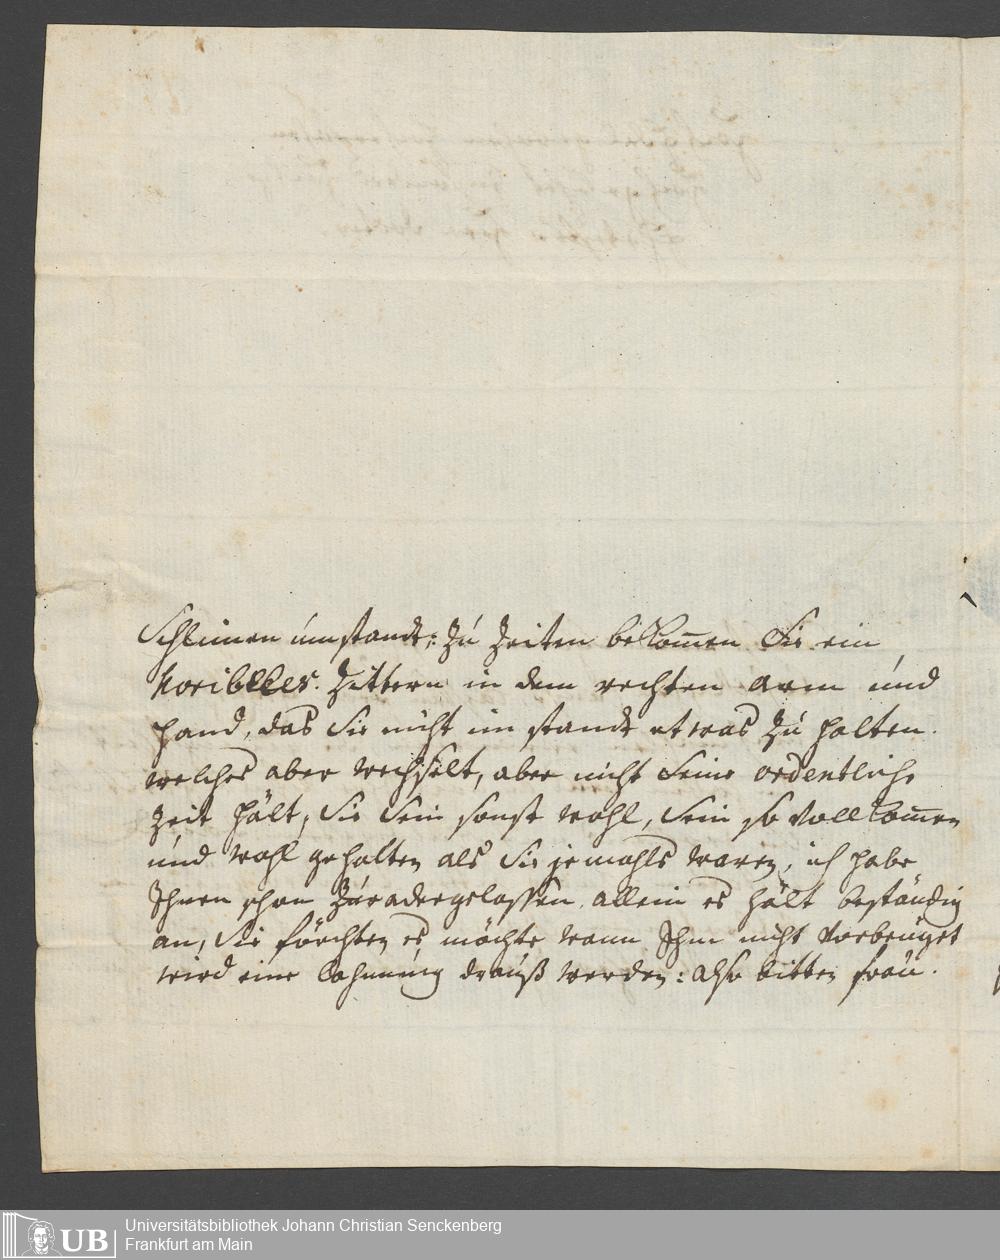 Schlimen umstandt: Zu Zeiten bekom̄en Sie ein
horibelles. Zittern in dem rechten arm und
Hand, das Sie nicht im stande etwas zu halten.
welches aber wechsselt, aber nicht Seine ordentliche
Zeit hält, Sie Sein sonst wohl, Sein so Vollkom̄en
und wohl gehalten als Sie jemahls waren, ich habe
Ihnen schon Zur adergelassen. allein es hält beständig
an, Sie förchten es möchte wann Ihm nicht Vorbeuget
wird eine Lahmung drauß werden: also bitten frau.
Universitätsbibliothek Johann Christian Senckenberg
Frankfurt am Main
UB